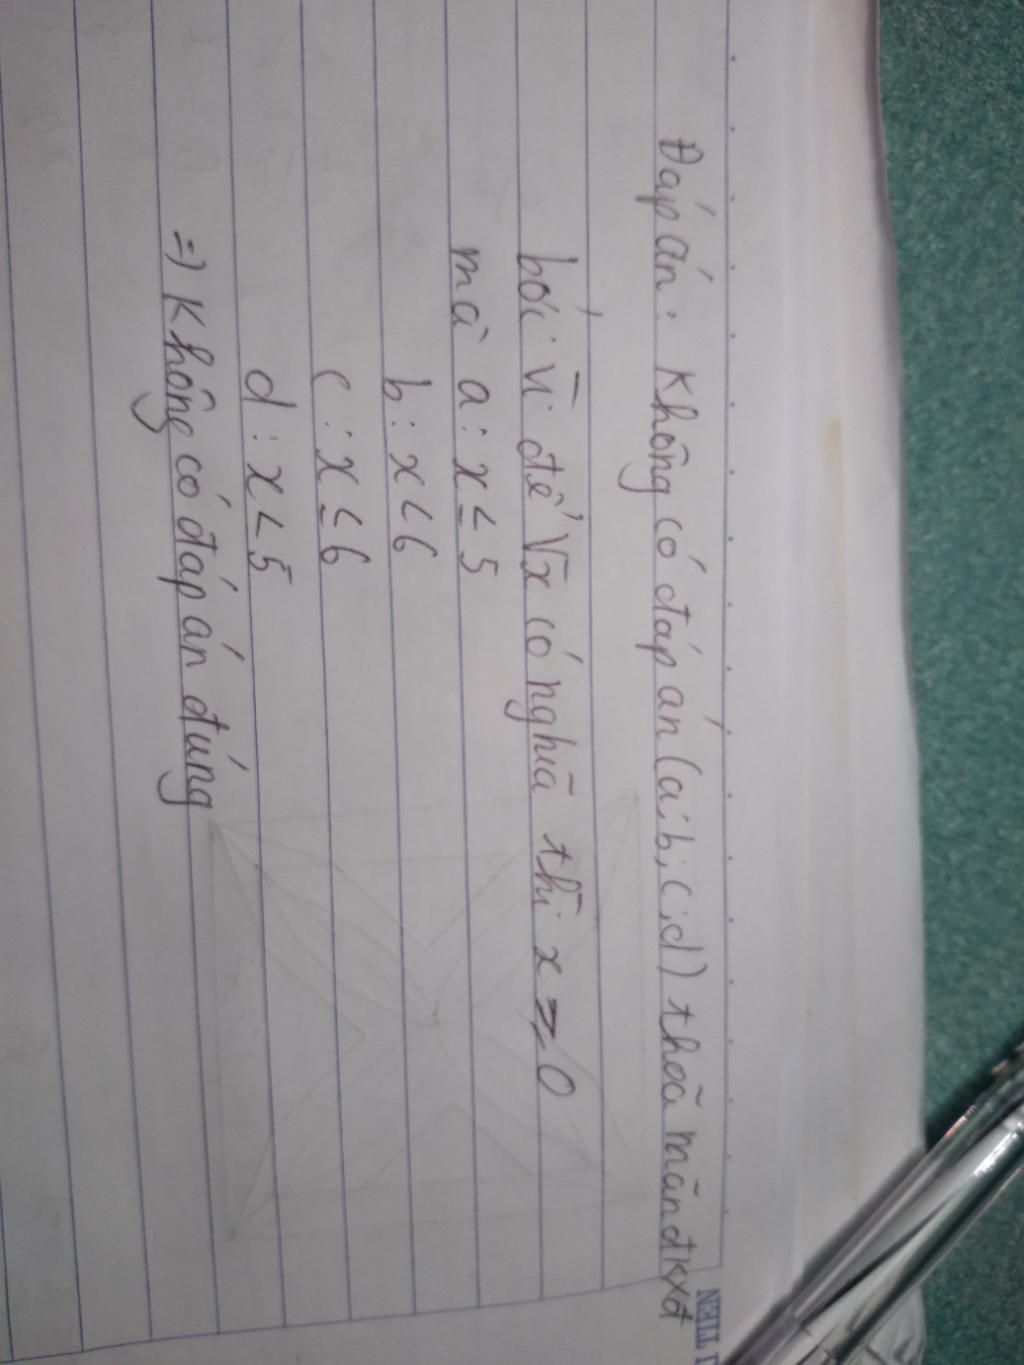 Đáp án: Không có đáp án (a;b;c;d) thoã mãn đkxđ
bởi vì để √x có nghĩa thì x ⩾ 0
mà a: x ≤ 5
b: x < 6
c: x ≤ 6
d: x < 5
=) Không có đáp án đúng